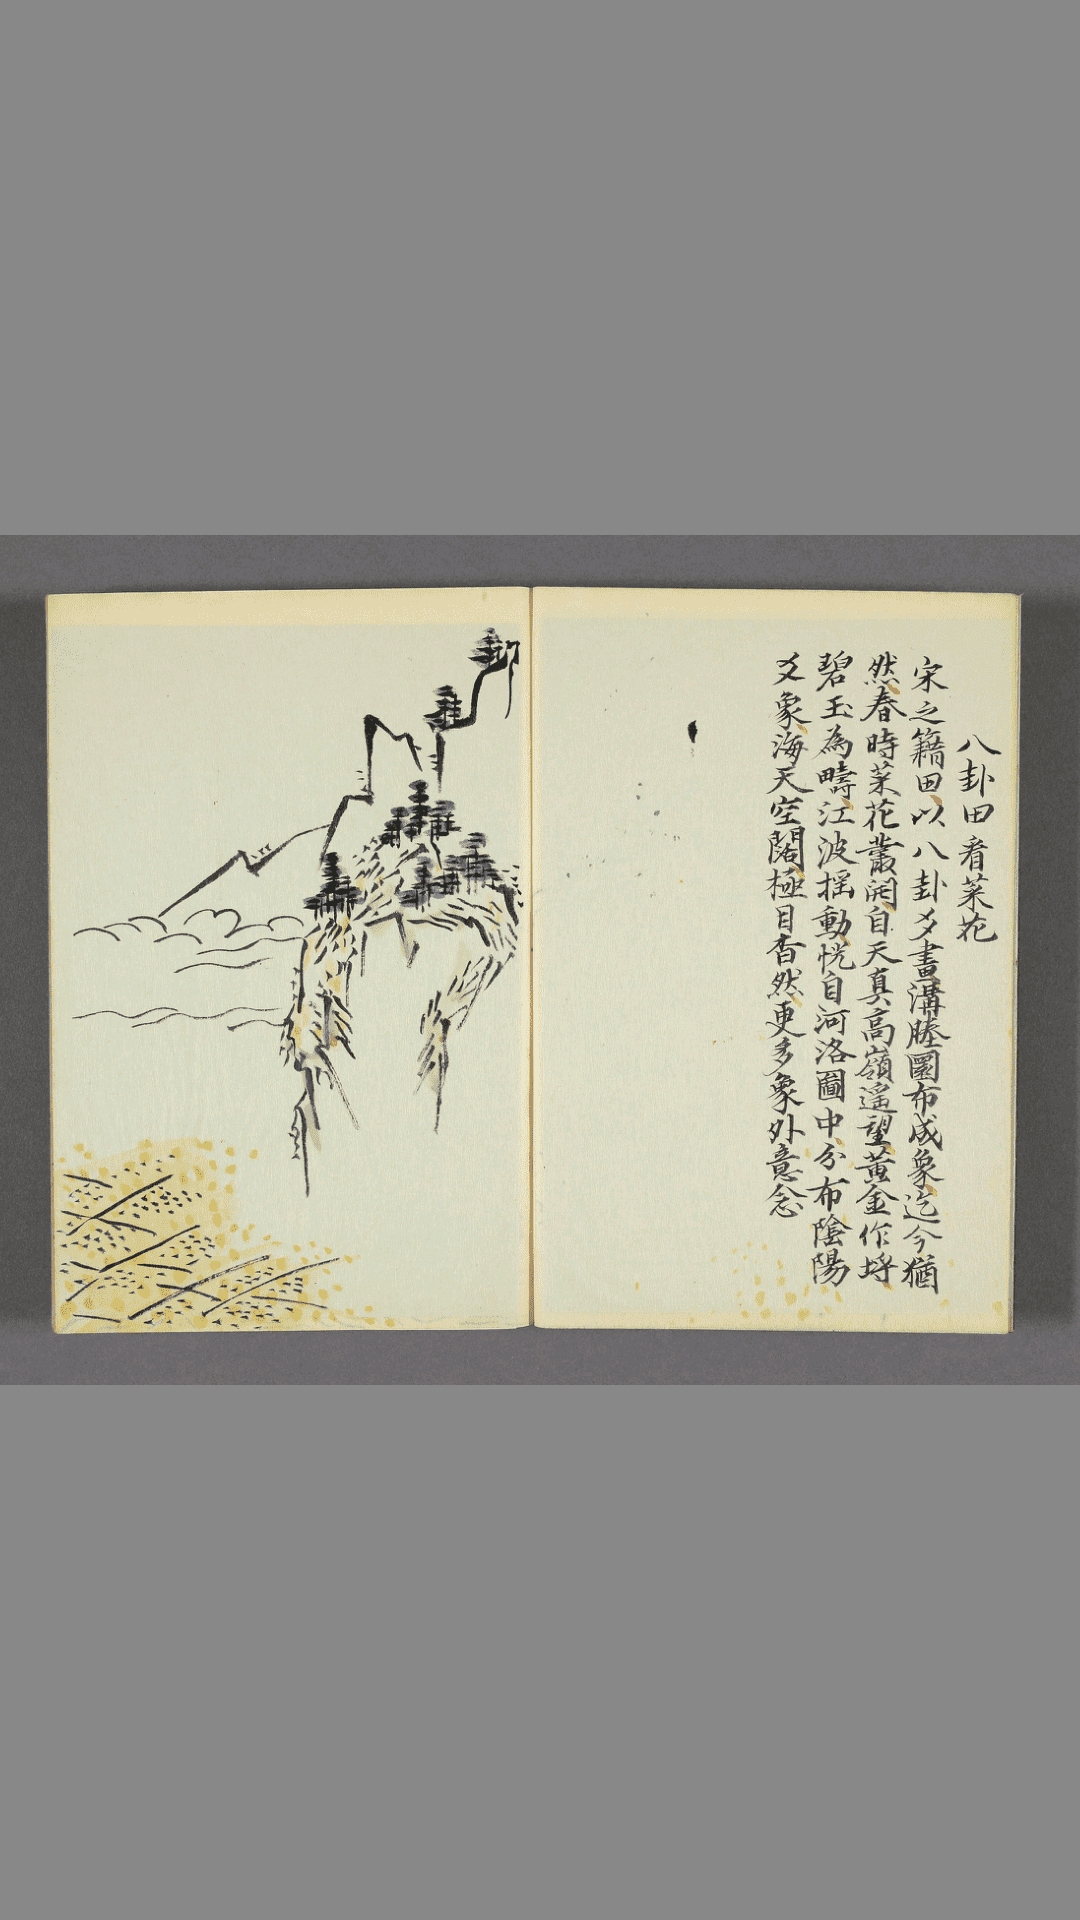 八卦田看菜花
宋之籍田以八卦爻畫溝塍圜布成象迄今猶
然春時菜花叢開自天真高嶺遥望黄金作埒
碧玉為疇江波揺動恍自河洛圖中分布陰陽
爻象海天空闊極目杳然更多象外意念